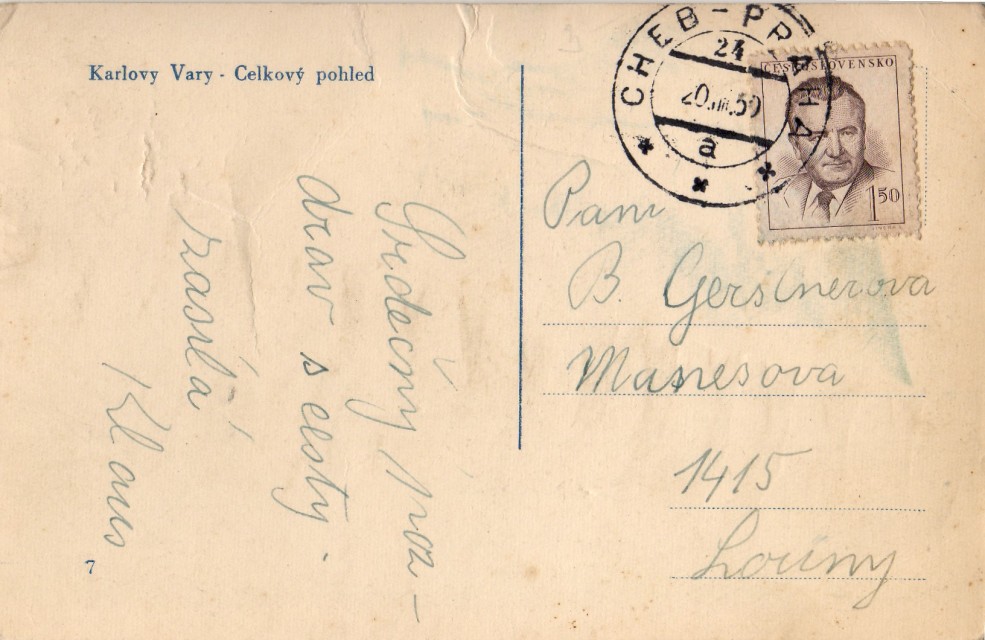 Karlovy Vary - Celkový pohled
Srdečný poz-
drav s cesty.
zasílá
Klaus
7
CHEB-PRAHA
24
50
a
ČESKOSLOVENSKO
1 50
Paní
B. Gerstnerova
Manesova
1415
Louny